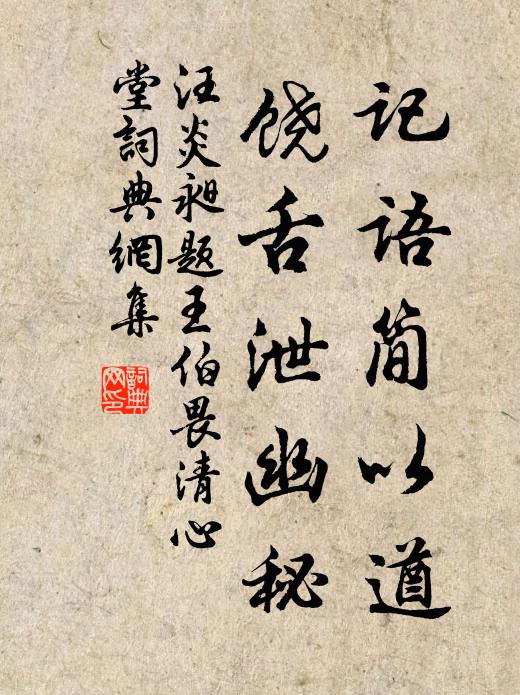 记语简以遒
饶舌泄幽秘
汪炎昶题王伯畏清心
堂詞典網集
詞典网印